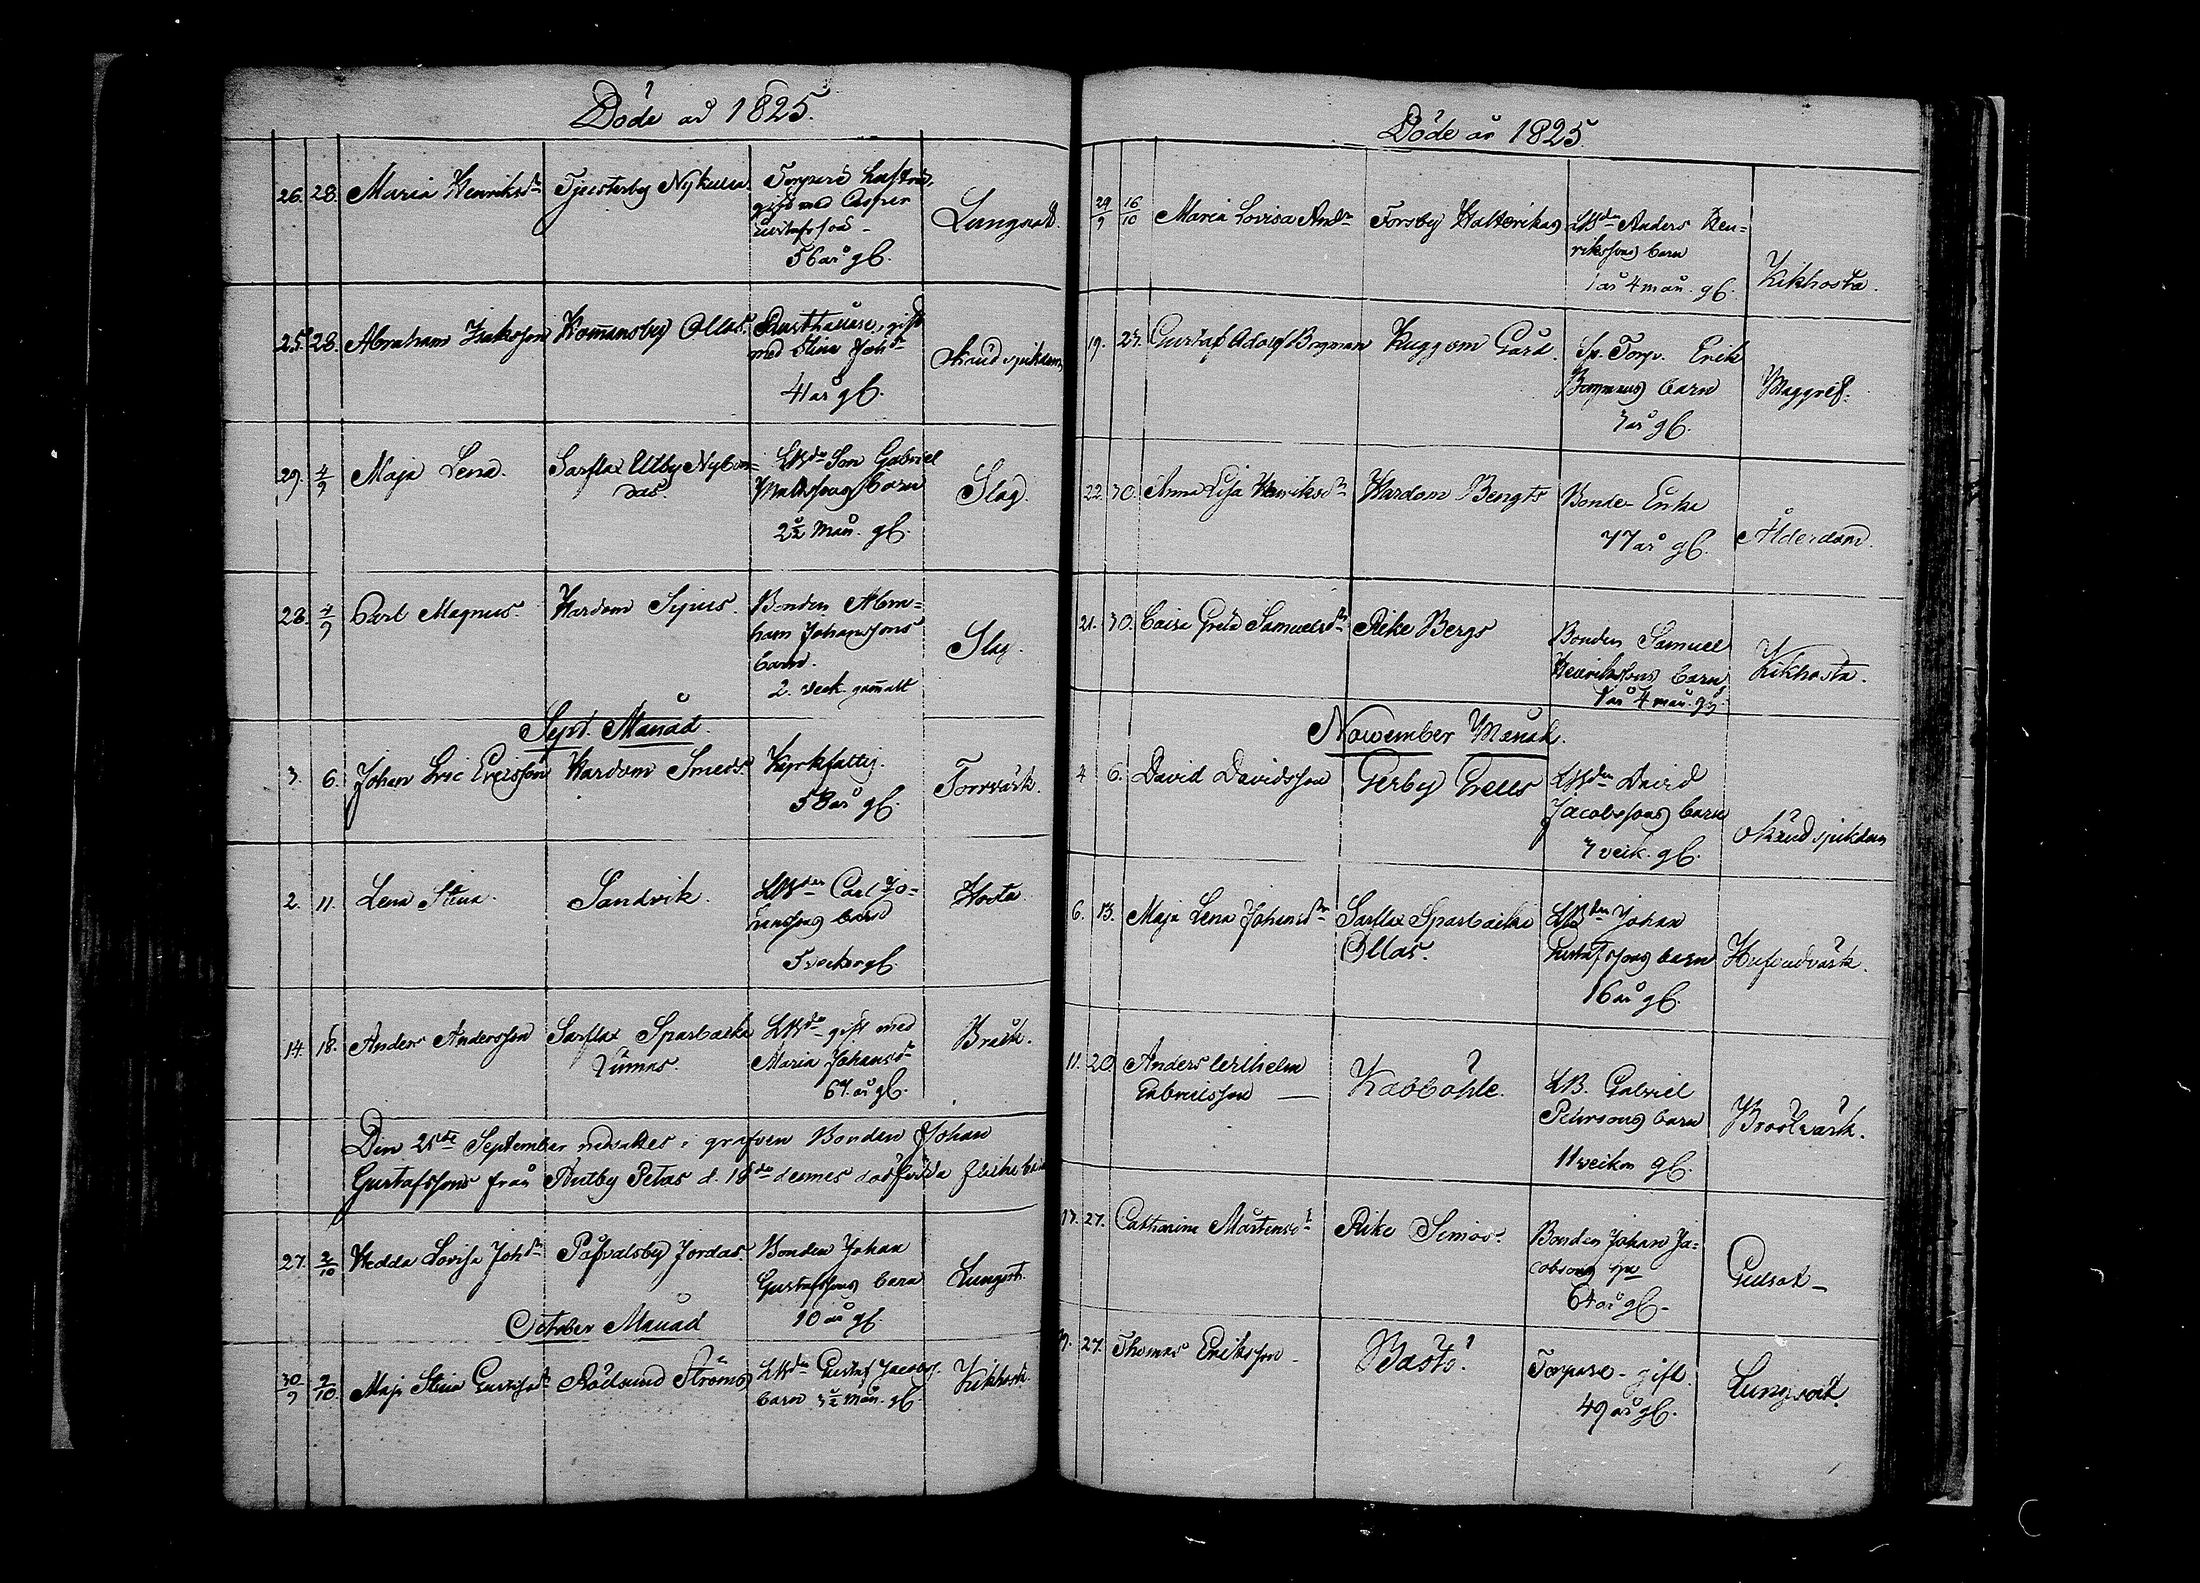 Döde år 1825.
26. 28. Maria Henriksdr Tjusterby Nykulla Torpare hustru,
gift med Casper
Gustafsson
56 år gl.
Lungsot.
25. 28. Abraham Isaksson Komansby Ollas. gift
med Stina Johdr
41 år gl.
okänd sjukdom
29. 4/9 Maja Lena. Sarflax Utby Nybon=
das. LBdn Son Gabriel
Mattssons barn
2 1/2 Mån. gl.
Slag.
28. 4/9 Carl Magnus. Hardom Sipus. Bonden Abra=
ham Johanssons
barn.
2. veck. gamalt
Slag.
Sept. Månad.
3. 6. Johan Eric Ericsson Hardom Smeds. Kyrkfattig.
58 år gl.
Torrvärk.
2. 11. Lena Stina. Sandvik. LBden Carl Jo=
hanssons barn
5 veckor gl.
Hosta.
14. 18. Anders Andersson Sarflax Sparbacka
LBdn gift med
Maria Johansdr
67 år gl.
Bråck.
Den 25de September nedsattes i grafven Bonden Johan
Gustafssons från Antby Petas d. 18de dennes dödfödda flicke barn
27. 2/10 Hedda Lovisa Johdr Påfvalsby Jordas. Bonden Johan
Gustafssons barn
10 år gl.
Lungsot.
October Månad
30/9 2/10. Maja Stina Gustafsdr Rödsund Ströms LBdn Gustaf Jacobss.
barn 3 1/2 mån. gl.
Kikhosta
Döde år 1825.
29/9 16/10 Maria Lovisa Andr Forsby LBdn Anders Hen=
rikssons barn
1 år 4 mån. gl.
Kikhosta.
19. 23. Gustaf Adolf Boxman Kuggom Gård. Sp. Torp. Erik
Boxmans barn
3 år gl.
Maggref.
22. 30. Anna Lisa Henriksdr Hardom Bengts Bonde-Enka
77 år gl.
Ålderdom.
21. 30. Caisa Greta Samuelsdr Rike Bergs Bonden Samuel
Henrikssons barn
1 år 4 mån. gl.
Kikhosta.
November Månad.
4 6. David Davidsson Gerby Grells LBden David
Jacobssons barn
3 veck. gl.
okänd sjukdom
6. 13. Maja Lena Johansdr Sarflax Sparbacka
Ollas.
LBden Johan
Gustafssons barn
16 år gl.
Hufvudvärk.
11. 20. Anders Wilhelm
Gabrielsson — Kabböhle. LB. Gabriel
Petersons barn
11 veckor gl.
Bröstvärk.
17. 27. Catharina Mårtensdr Rike Simos. Bonden Johan Ja=
cobsons
64 år gl.
Gulsot
27. Thomas Eriksson Bastö. Torpare gift.
49 år gl.
Lungsot.